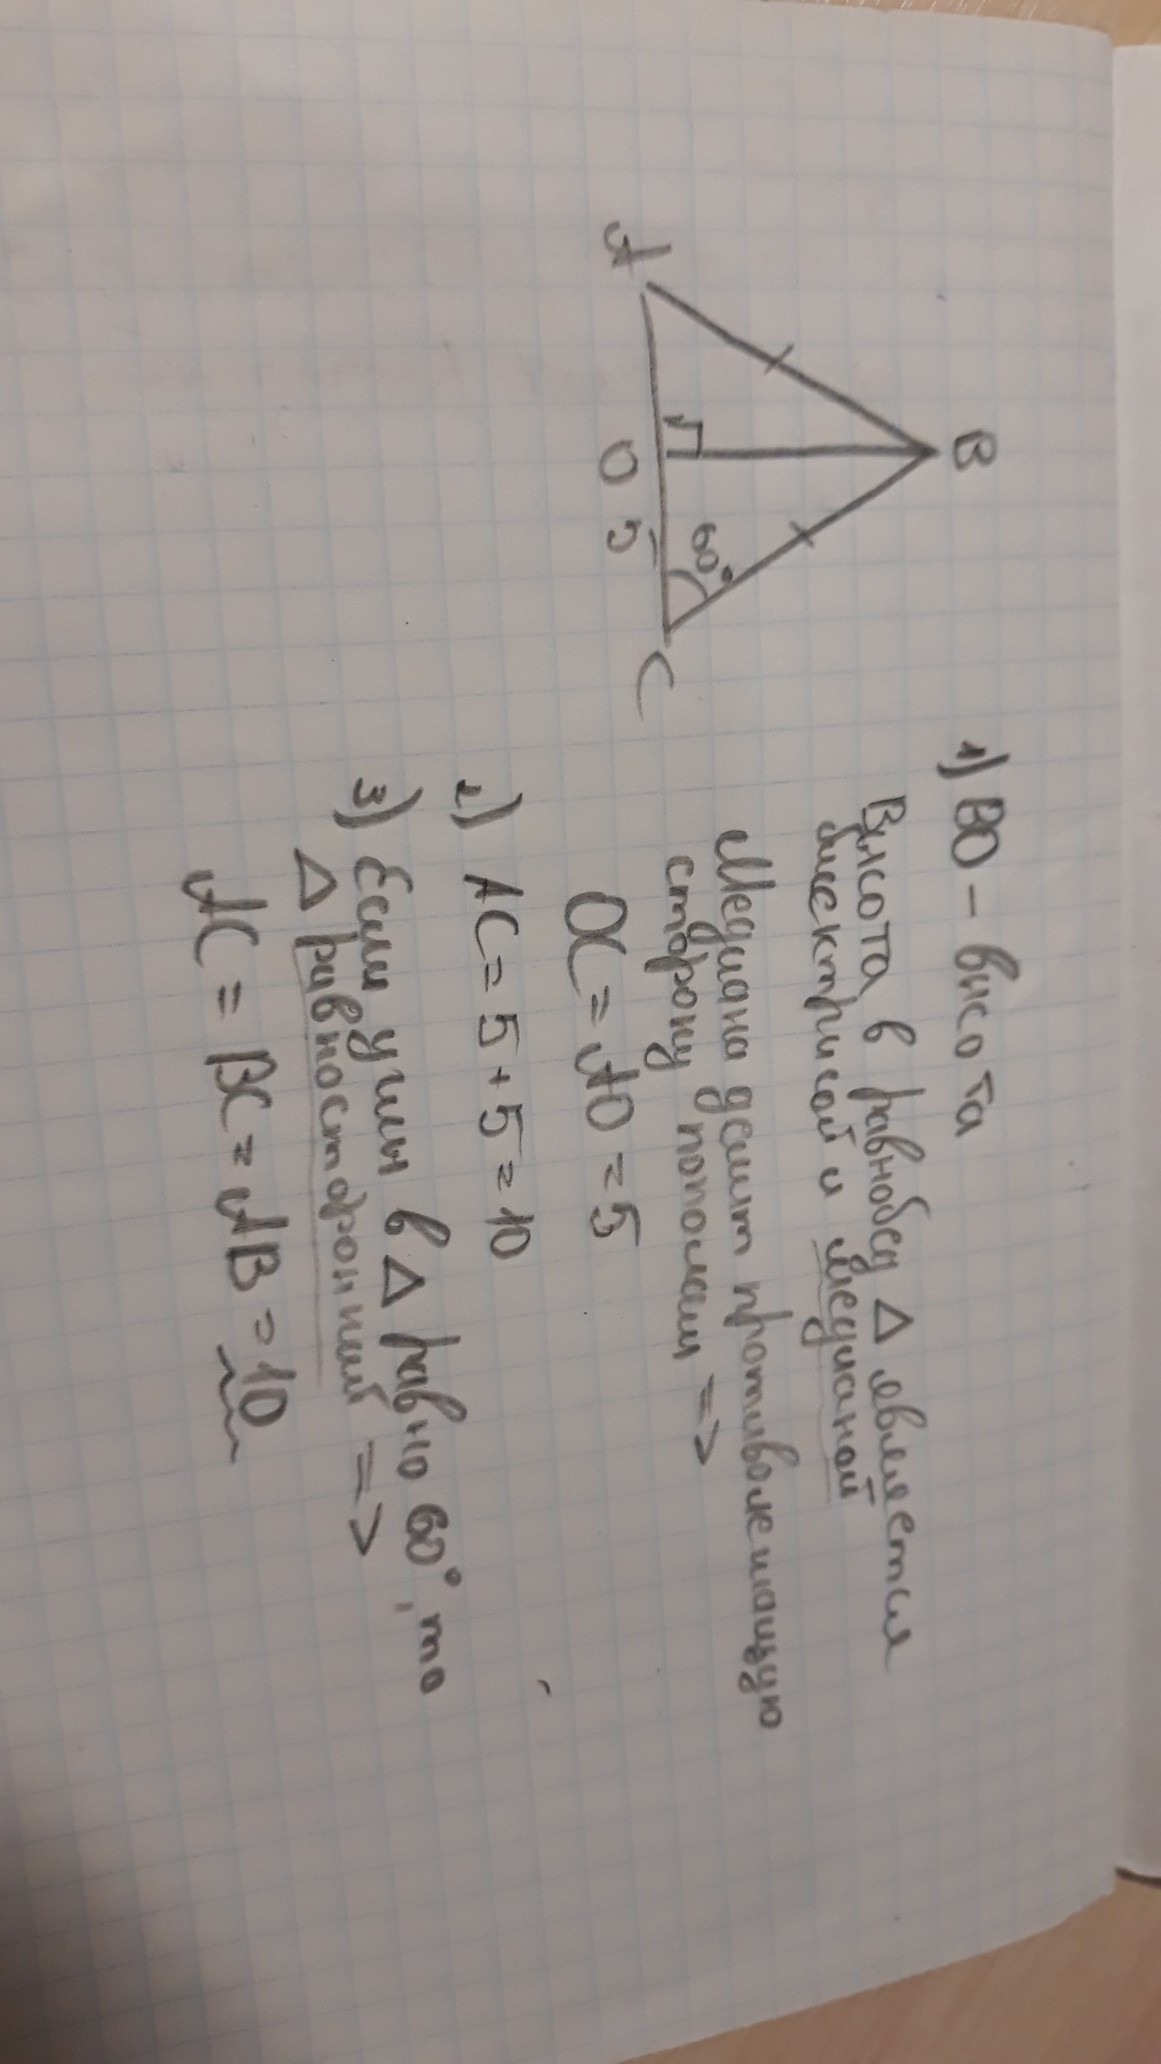 B
A
O
C
5
60°
1) BO - высота
Высота в равнобед △ является
биссектрисой и медианой
Медиана делит противолежащую
сторону пополам =>
OC = AO = 5
2) AC = 5 + 5 = 10
3) Если углы в △ равно 60°, то
△ равносторонний =>
AC = BC = AB = 10